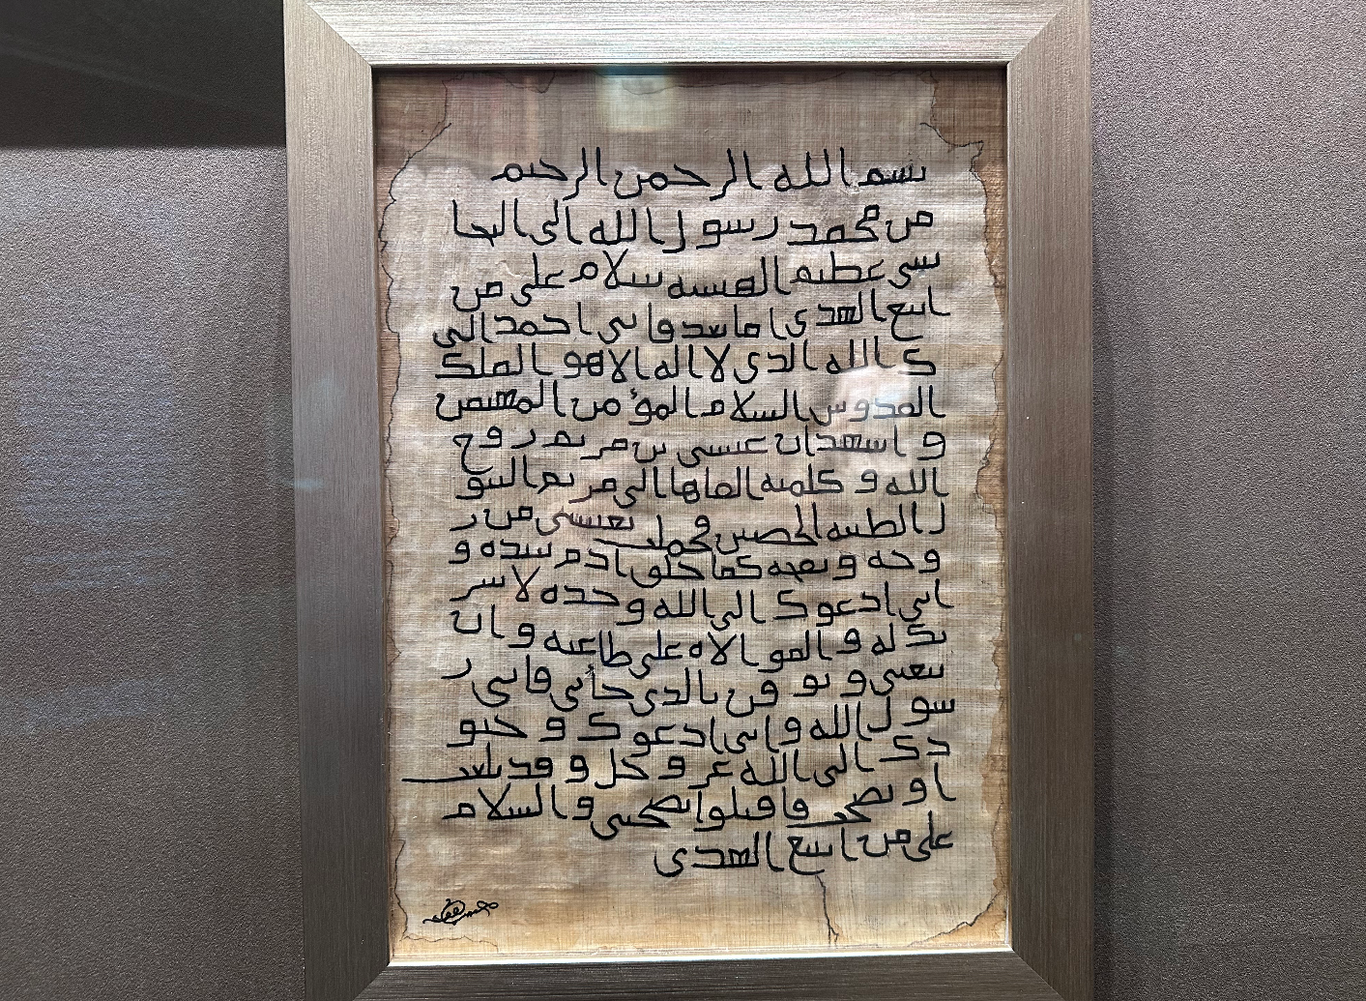 بسم الله الرحمن الرحيم
من محمد رسول الله الى النجا
شي عظيم الحبشه سلام على من
اتبع الهدى اما بعد فاني احمد الي
ك الله الذي لا اله الا هو الملك
القدوس السلام المؤمن المهيمن
و اشهد ان عيسى بن مريم روح
الله و كلمته القاها الى مريم البتو
ل الطيبه الحصينه فحملت بعيسى من ر
وحه و نفخه كما خلق ادم بيده و
اني ادعوك الى الله وحده لا شر
يك له و الموالاه على طاعته و ان
تتبعني و توقن بالذي جأني فاني ر
سول الله و اني ادعوك و جنو
دك الى الله عز و جل و قد بلغت
و نصحت فاقبلوا نصحي و السلام
على من اتبع الهدى